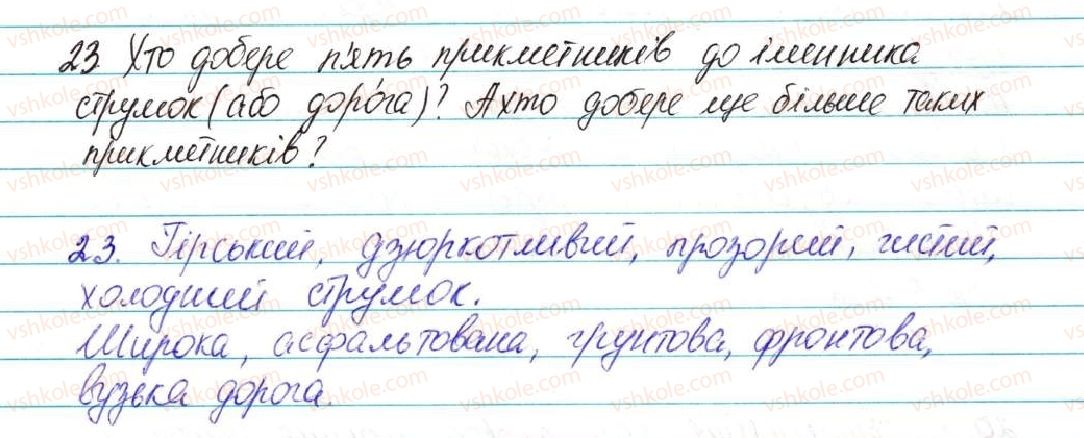 23. Хто добере п'ять прикметників до іменника
струмок (або дорóга)? А хто добере ще більше таких
прикметників?
23. Гірський, дзюркотливий, прозорий, чистий,
холодний струмок.
Широка, асфальтована, грунтова, фронтова,
вузька дорога.